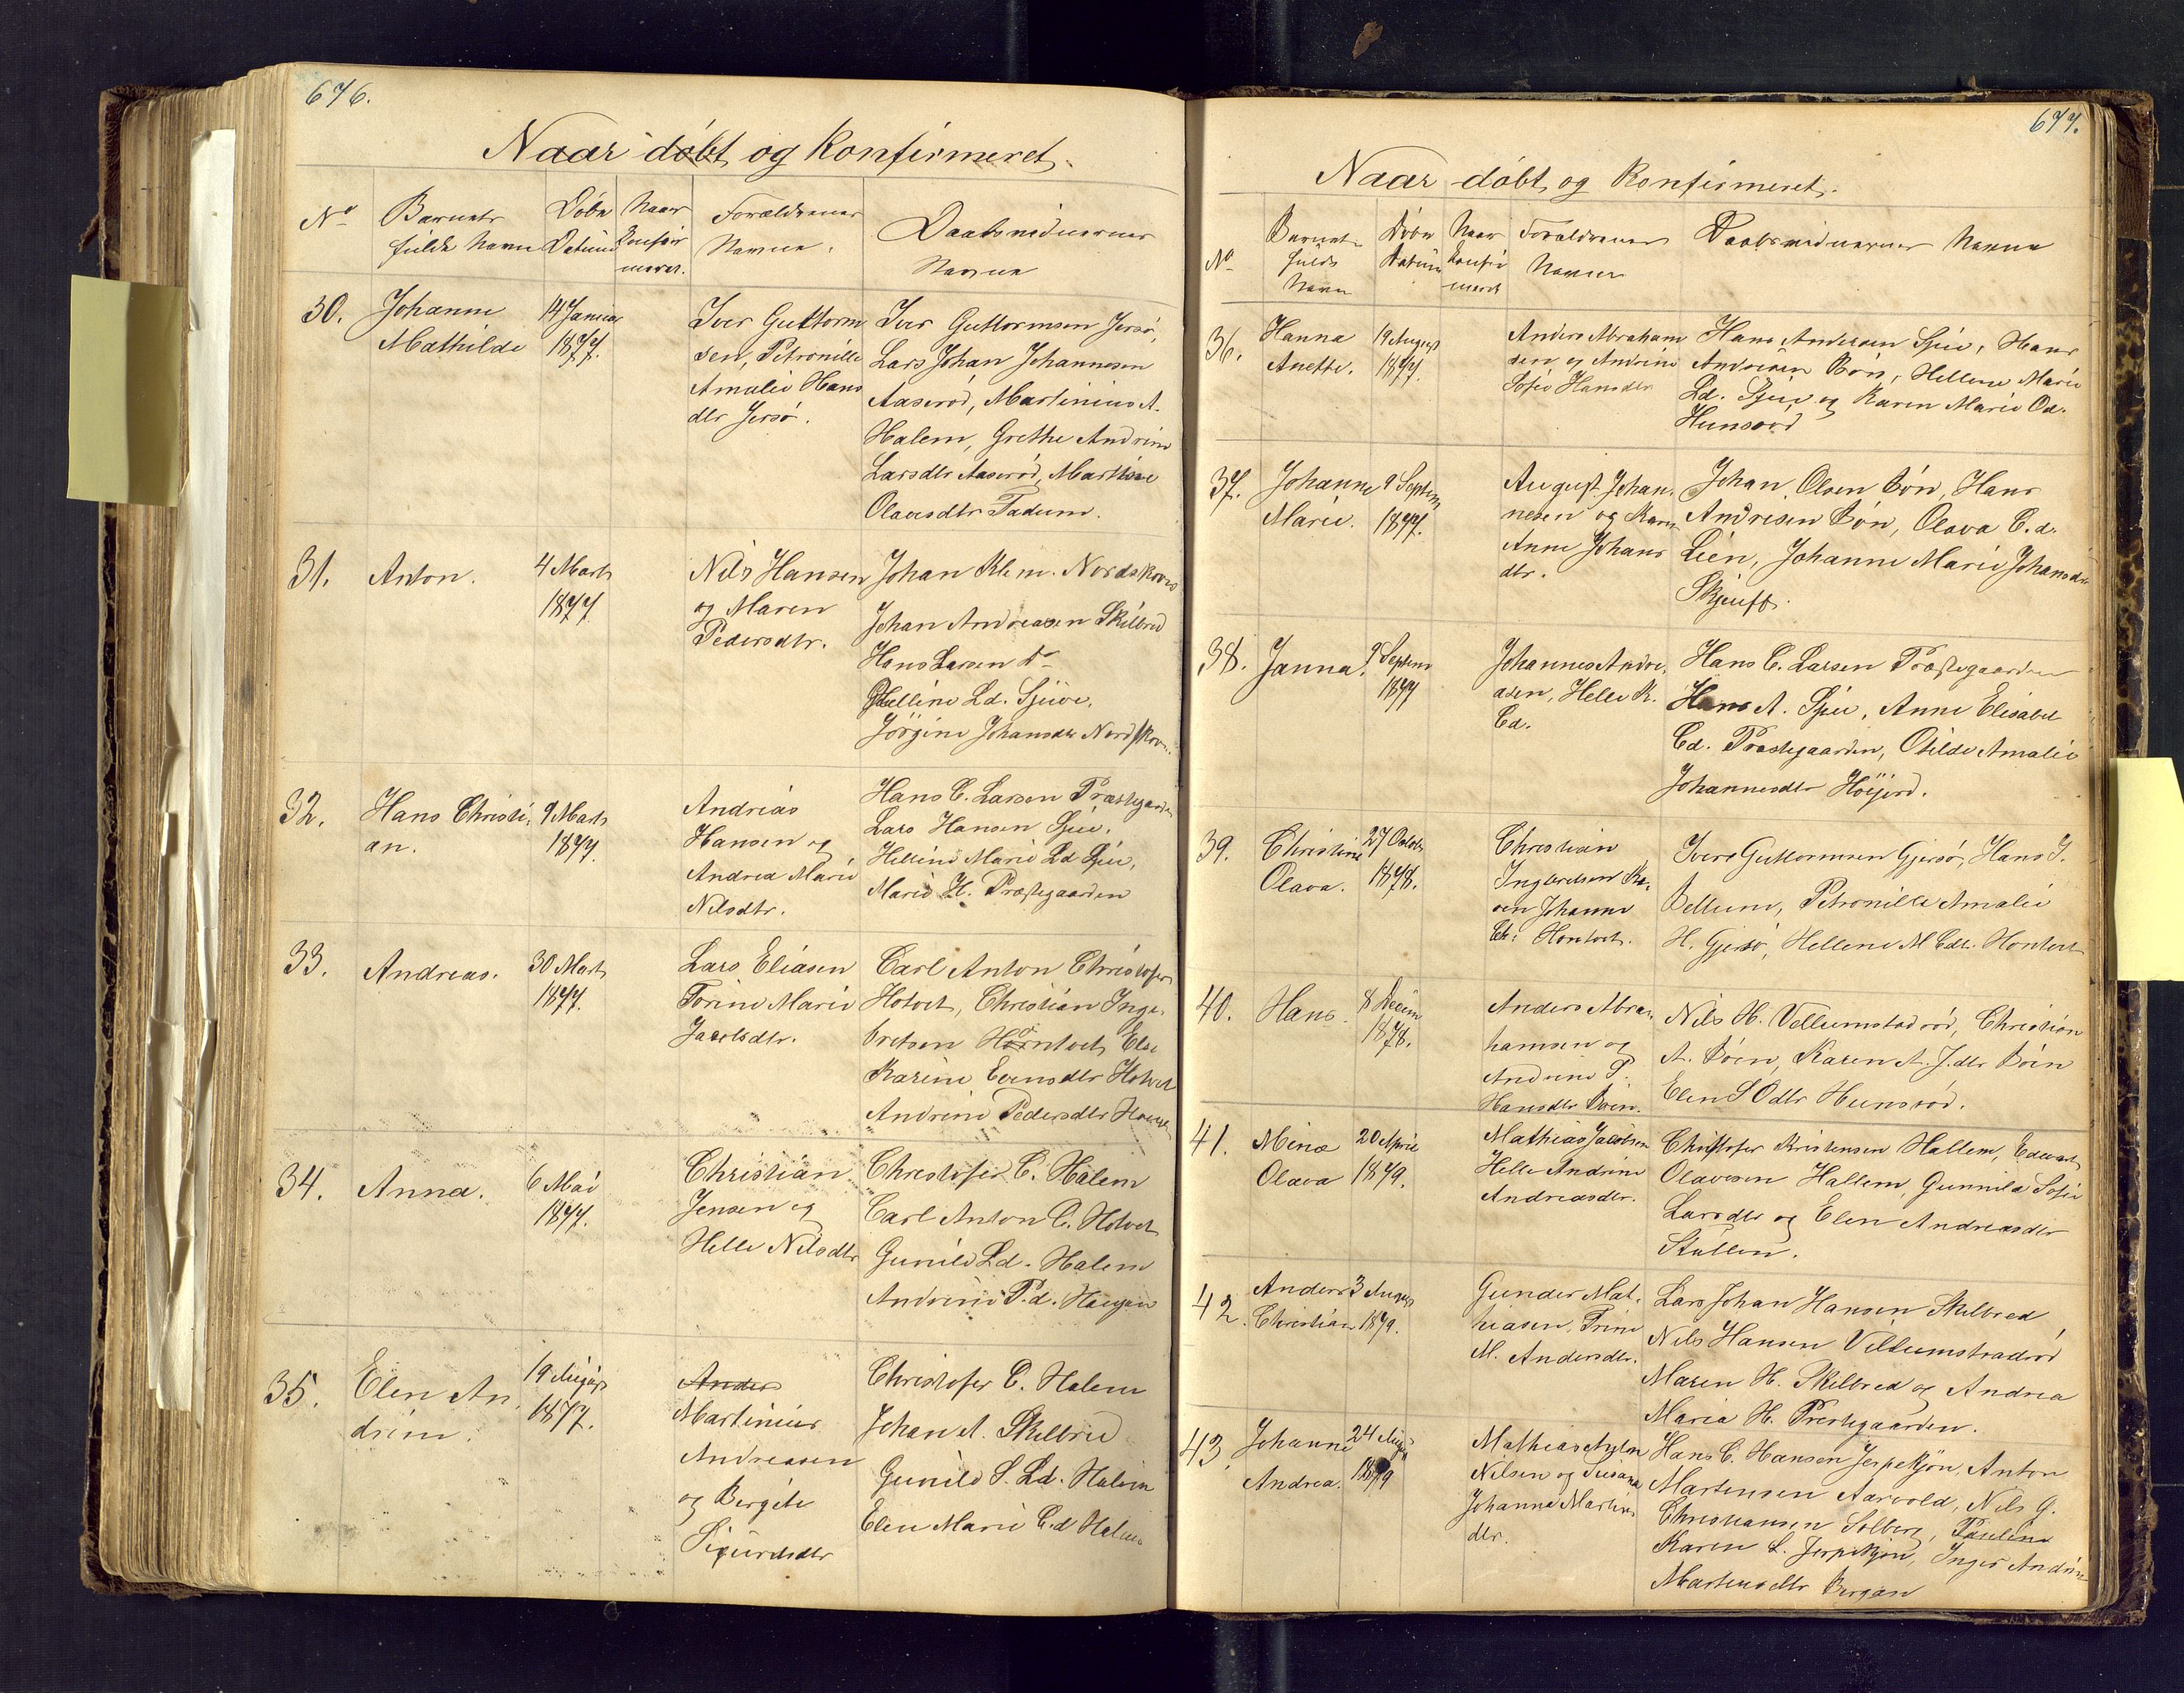 676.
Naar døbt og Konfirmeret.
No
Barnets
fulde Navn
Døbe
Datum
Naar
Konfir
meret.
Forældrenes
Navne.
Daabsvidnernes
Navne
30.
Johanne
Mathilde
14 Januar
1877.
Iver Guttorm
sen, Petronille
Amalie Hans
dtr Jersø.
Iver Guttormsen Jersø,
Lars Johan Johannesen
Aaserød, Martinius A.
Halem, Grethe Andrine
Larsdtr Aaserød, Martine
Olavesdtr Tadum.
31.
Anton.
4 Marts
1877.
Nils Hansen
og Maren
Pedersdtr.
Johan Klem. Nordskoven
Johan Andreasen Skilbred
Hans Larsen do
Helline Ld. Sjue,
Jørgine Johansdtr Nordskov.
32.
Hans Christi
an.
9 Marts
1877.
Andreas
Hansen og
Andrea Marie
Nilsdtr.
Hans C. Larsen Præstegaarden
Lars Hansen Sjue,
Helline Marie Ld Sjue,
Marie H. Præstegaarden
33.
Andreas.
30 Marts
1877.
Lars Eliasen
Torine Marie
Jacobsdtr.
Carl Anton Christofer
Hotvet, Christian Inge
bretsen Hontvet, Else
Karine Evensdtr Hotvet
Andrine Pedersdtr
34.
Anna.
6 Mai
1877.
Christian
Jensen og
Helle Nilsdtr
Christofer C. Halem
Carl Anton C. Hotvet
Gunild Ld. Halem
Andrine P.d. Haugen
35.
Elen An
drine.
19 August
1877.
Anders
Martinius
Andreasen
og Bergite
Sigurdsdtr
Christofer C. Halem
Johan A. Skilbred
Gunild S. Ld. Halem
Elen Marie C.d Halem
677.
Naar døbt og Konfirmeret.
No
Barnets
fulde
Navn
Døbe
Datum
Naar
Konfir
meret
Forældrenes
Navne
Daabsvidnernes Navne
36.
Hanna
Anette.
19 August
1877.
Anders Abraham
sen og Andrine
Sofie Hansdtr
Hans Andersen Sjue, Hans
Andresen Bøn, Hellene Marie
Ld. Sjue og Karen Marie Od.
Hunsrød
37.
Johanne
Marie.
9 Septem
1877.
August Johan
nesen og Karen
Anne Johans
dtr.
Johan Olsen Bøn, Hans
Andresen Bøn, Olava C.d.
Lien, Johanne Marie Johansdtr
38.
Janna.
9 Septem
1877
Johannes Andre
asen, Helle K.
Cd.
Hans C. Larsen Præstegaarden
Hans A. Sjue, Anne Elisabet
Cd. Præstegaarden, Otilde Amalie
Johannesdtr Høijord.
39.
Christine
Olava.
27 Octob
1878.
Christian
Ingbretsen Ka
ren Johanne
Hontvet.
Iver Guttormsen Gjersø, Hans J.
Bellum, Petronille Amalie
H. Gjersø, Hellene M Cdtr. Hontvet
40.
Hans.
8 Decem
1878.
Anders Abra
hamsen og
Andrine S.
Hansdtr Bøen.
Nils H. Vellumstadrød, Christian
A. Bøen, Karen A. J.dtr Bøen
Elen S Odtr Hunsrød.
41.
Mina
Olava
20 April
1879.
Mathias Jacobsen
Helle Andrine
Andreasdtr.
Christofer Kristensen Hallem, Edvart
Olavesen Hallem, Gunnild Sofie
Larsdtr og Elen Andreasdtr
Stullen.
42.
Anders
Christian
3 August
1879.
Gunder Mat
hiasen, Trine
M. Andersdtr.
Lars Johan Hansen Skilbred
Nils Hansen Vellumstradrød
Maren H. Skilbred og Andrea
Maria H. Prestegaarden.
43.
Johanne
Andrea.
24 August
1879
Mathias Anton
Nilsen og Susana
Johanne Martins
dtr.
Hans C. Hansen Jerpekjøn, Anton
Martensen Aarvold, Nils G.
Christiansen Solberg, Pauline
Karen L. Jerpekjøn, Inger Andrine
Martensdtr Bergan